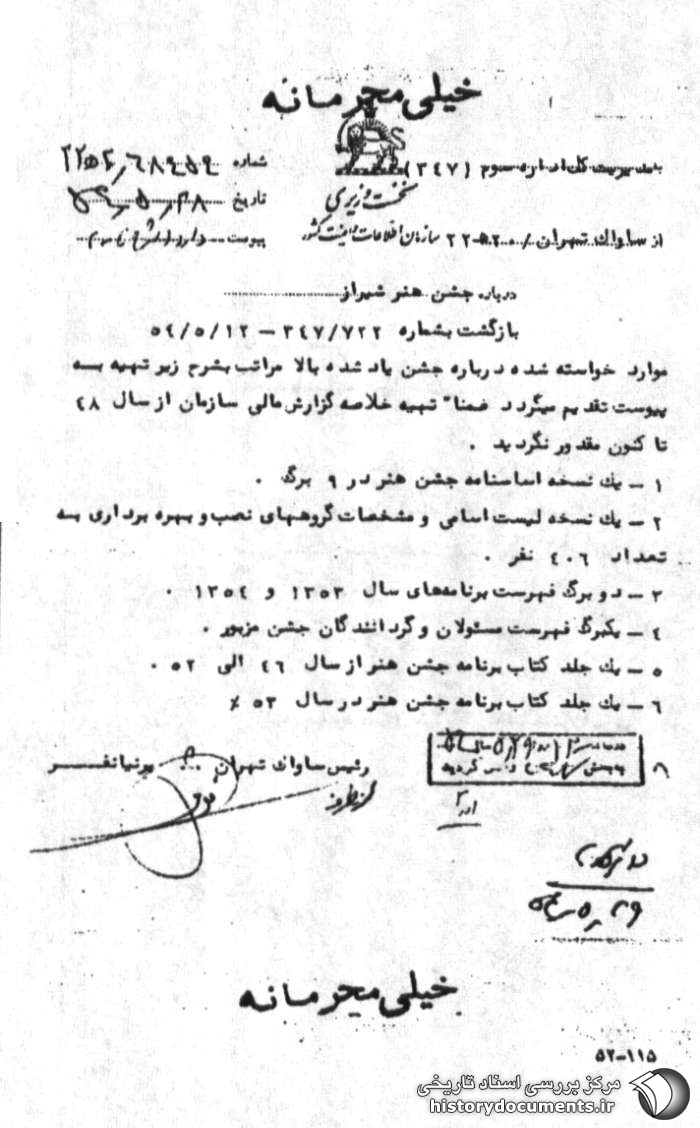 خیلی محرمانه
بمدیریت کل اداره سوم (۳۴۷)
شماره
نخست وزیری
تاریخ ۵۴٫۵٫۲۸
از ساواک تهران سازمان اطلاعات و امنیت کشور
پیوست دارد
درباره جشن هنر شیراز
بازگشت بشماره ۳۴۷/۷۲۲ – ۵۴/۵/۱۲
موارد خواسته شده درباره جشن یاد شده بالا مراتب بشرح زیر تهیه به
پیوست تقدیم میگردد ضمنا" تهیه خلاصه گزارش مالی سازمان از سال ۴۸
تا کنون مقدور نگردید .
۱ – یک نسخه اساسنامه جشن هنر در ۹ برگ .
۲ – یک نسخه لیست اسامی و مشخصات گروههای نصب و بهره برداری به
تعداد ۴۰۶ نفر .
۳ – دو برگ فهرست برنامه‌های سال ۱۳۵۳ و ۱۳۵۴ .
۴ – یکبرگ فهرست مسئولان و گردانندگان جشن مزبور .
۵ – یک جلد کتاب برنامه جشن هنر از سال ۴۶ الی ۵۲ .
۶ – یک جلد کتاب برنامه جشن هنر در سال ۵۳ ٪
رئیس ساواک تهران پرنیانفر
خیلی محرمانه
۵۲-۱۱۵
مرکز بررسی اسناد تاریخی
historydocuments.ir